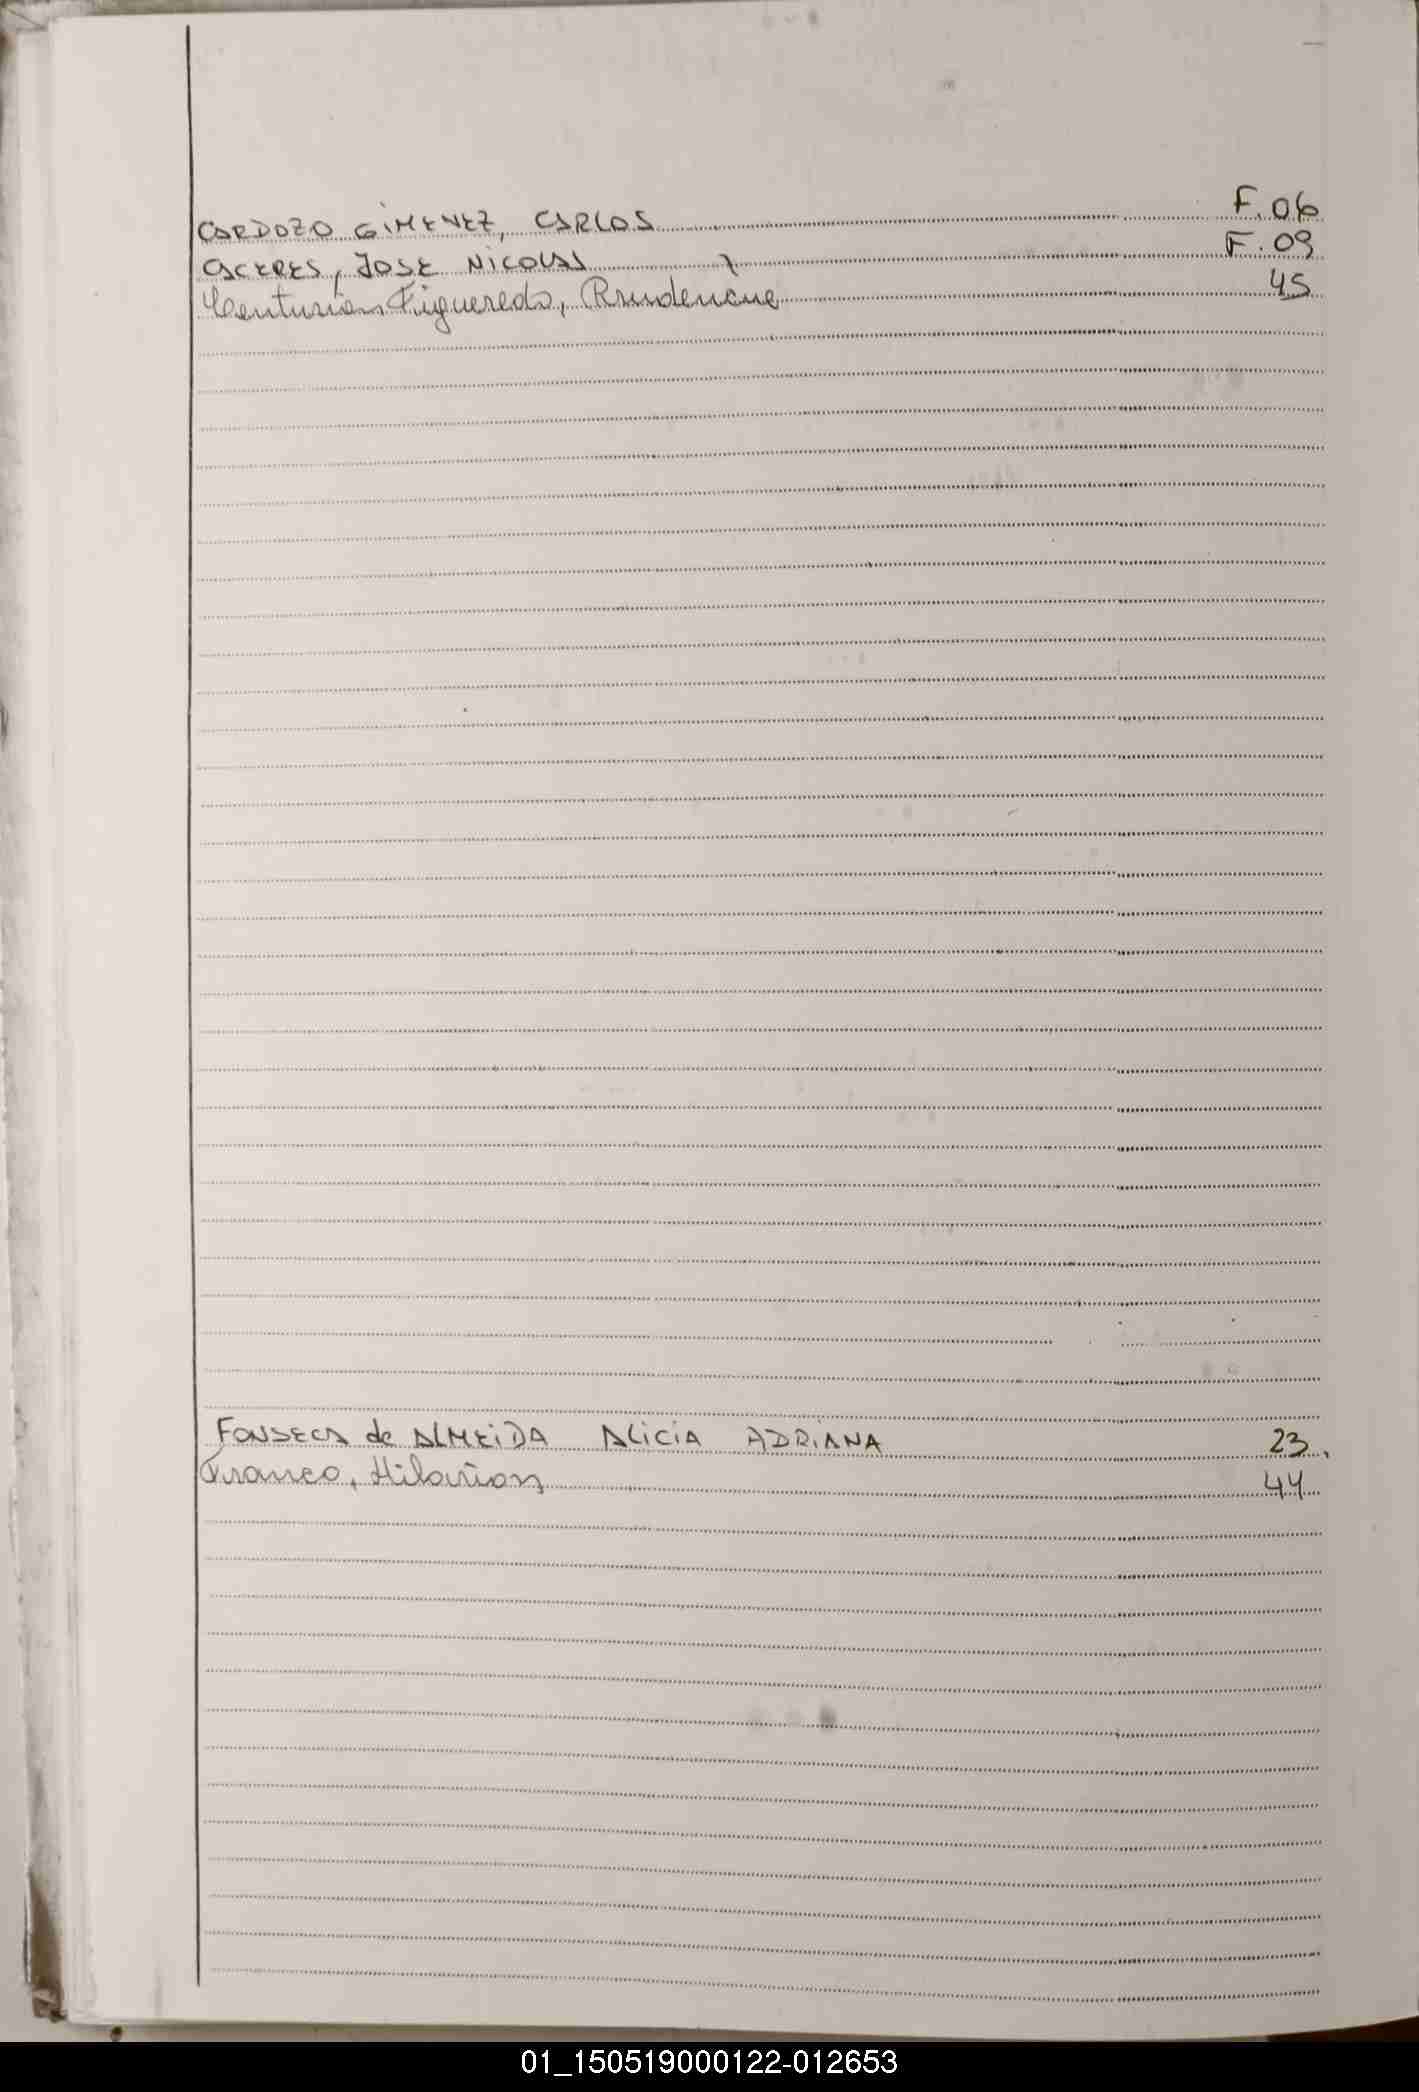 CARDOZO GIMENEZ, CARLOS F. 06
CACERES, JOSE NICOLAS F. 09
Centurión Figueredo, Prudencia 45
FONSECA de ALMEIDA ALICIA ADRIANA 23.
Franco, Hilarion 44
01_150519000122-012653